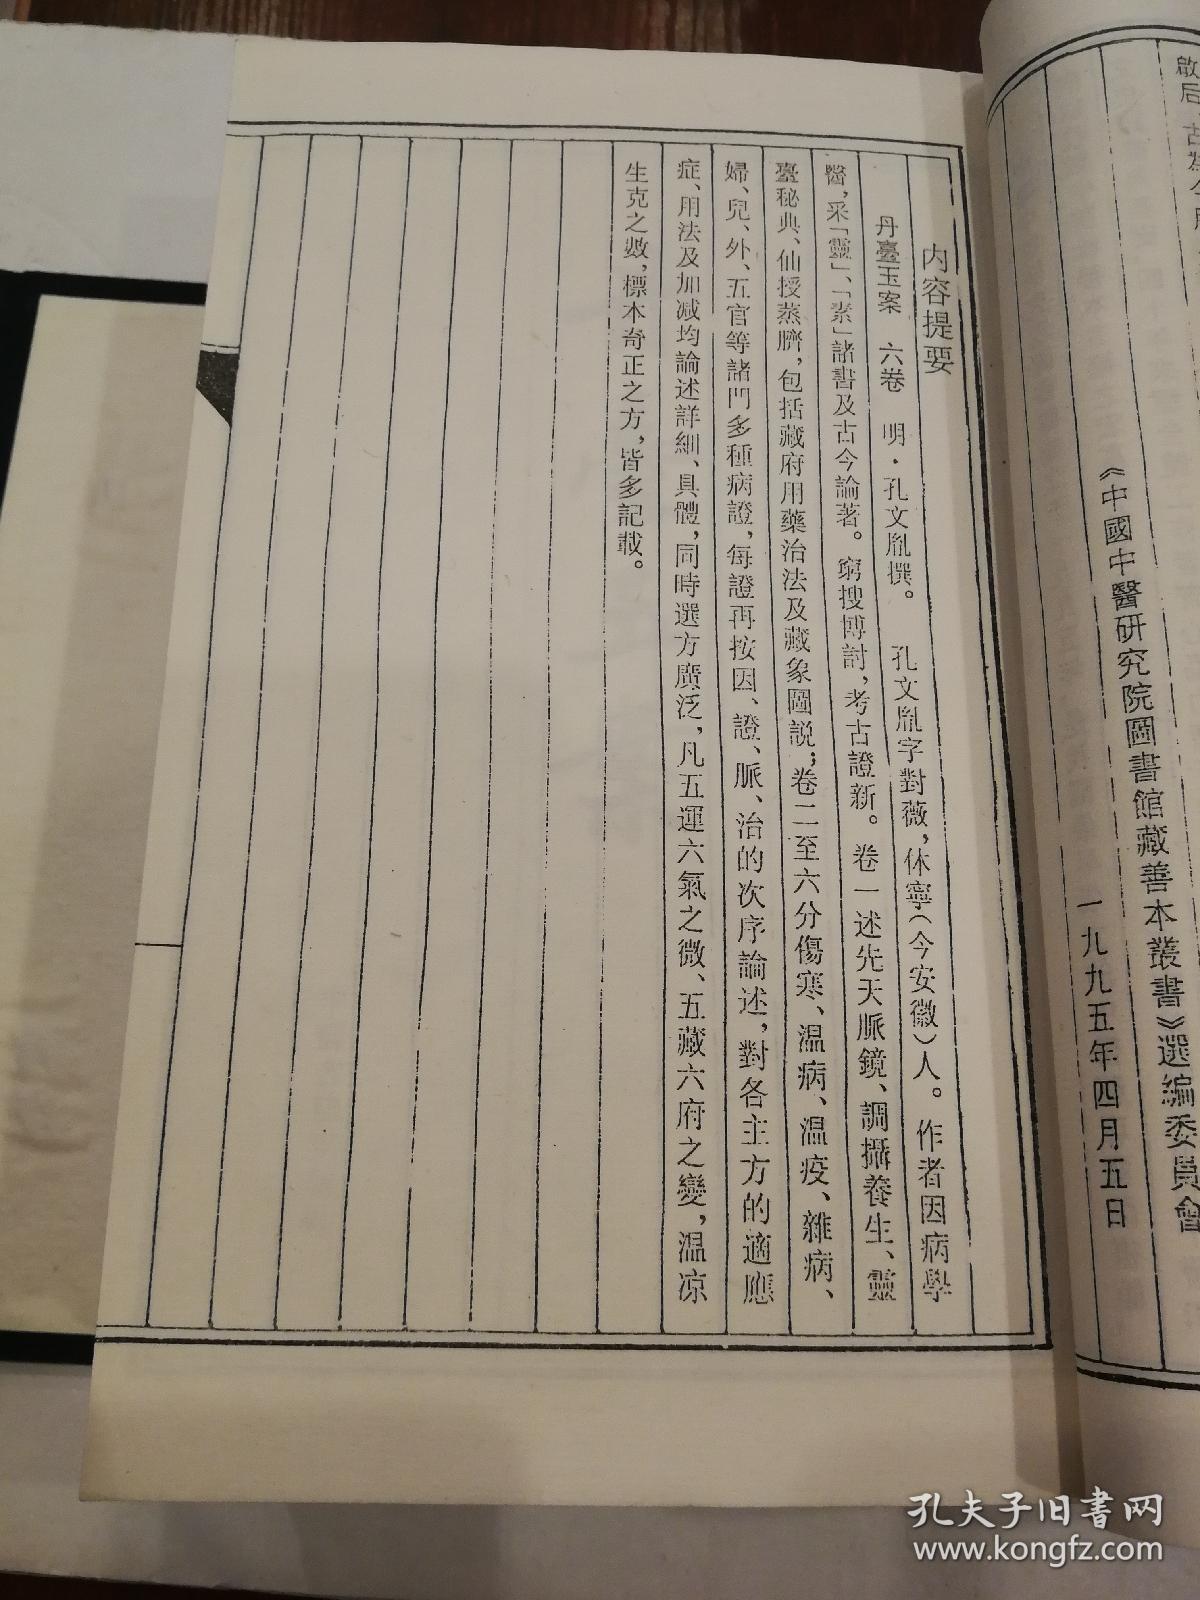 啟后
《中國中醫研究院圖書館藏善本叢書》選編委員會
一九九五年四月五日
内容提要
丹臺玉案　六卷　明·孔文胤撰。　孔文胤字對薇，休寧（今安徽）人。作者因病學
醫，采「靈」、「素」諸書及古今論著。窮搜博討，考古證新。卷一述先天脈鏡、調攝養生、靈
臺秘典、仙授蒸臍，包括藏府用藥治法及藏象圖説；卷二至六分傷寒、温病、温疫、雜病、
婦、兒、外、五官等諸門多種病證，每證再按因、證、脈、治的次序論述，對各主方的適應
症、用法及加减均論述詳細、具體，同時選方廣泛，凡五運六氣之微、五藏六府之變，温凉
生克之數，標本奇正之方，皆多記載。
孔夫子旧书网
www.kongfz.com